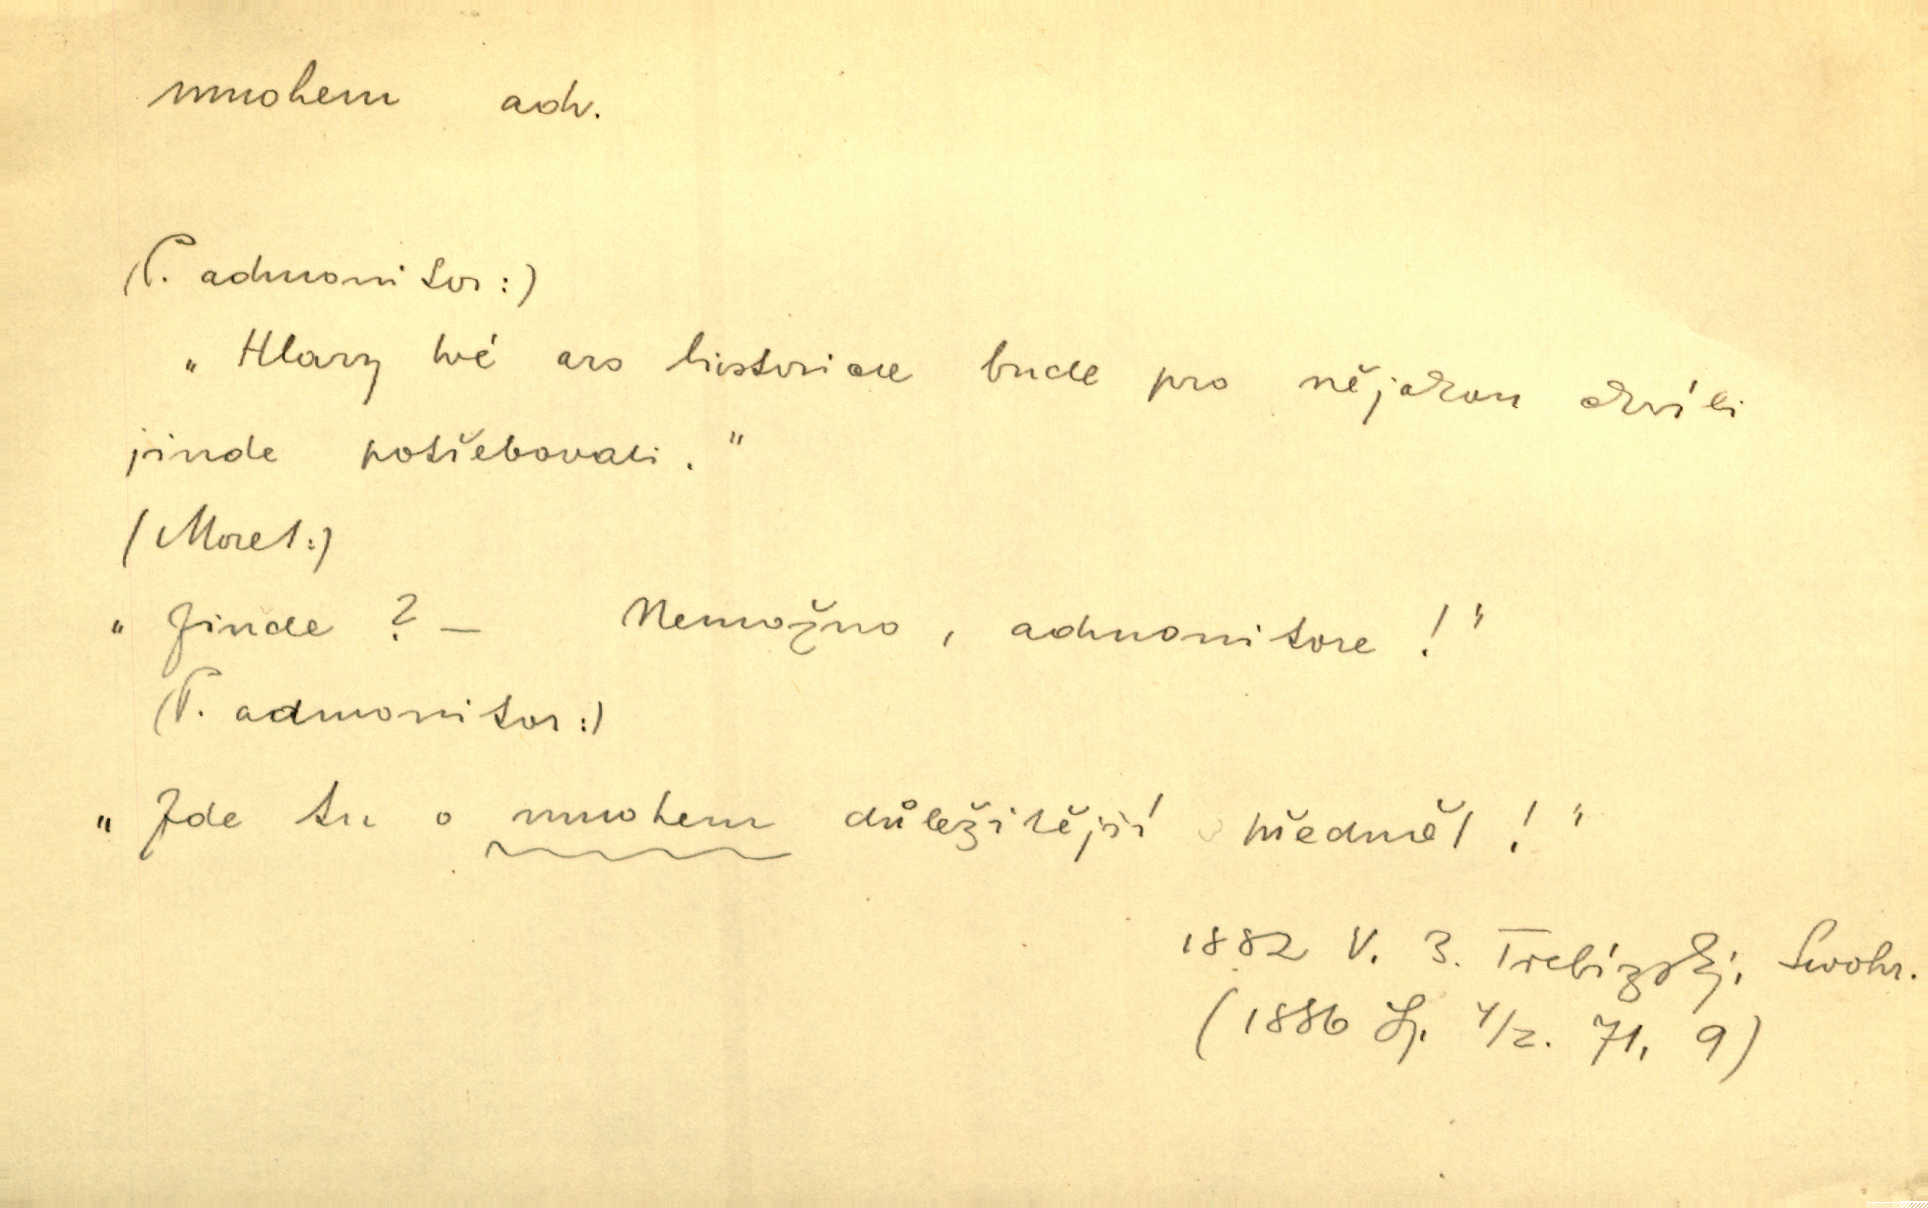 mnohem adv.
(P. admonitor:)
„Hlavy tvé ars historicae bude pro nějakou chvíli
jinde potřebovati."
(Moret:)
„Jinde? — Nemožno, admonitore!"
(P. admonitor:)
„Jde tu o mnohem důležitější předmět!"
1882 V. B. Třebízský,
(1886 Sp. 4/2. 71, 9)